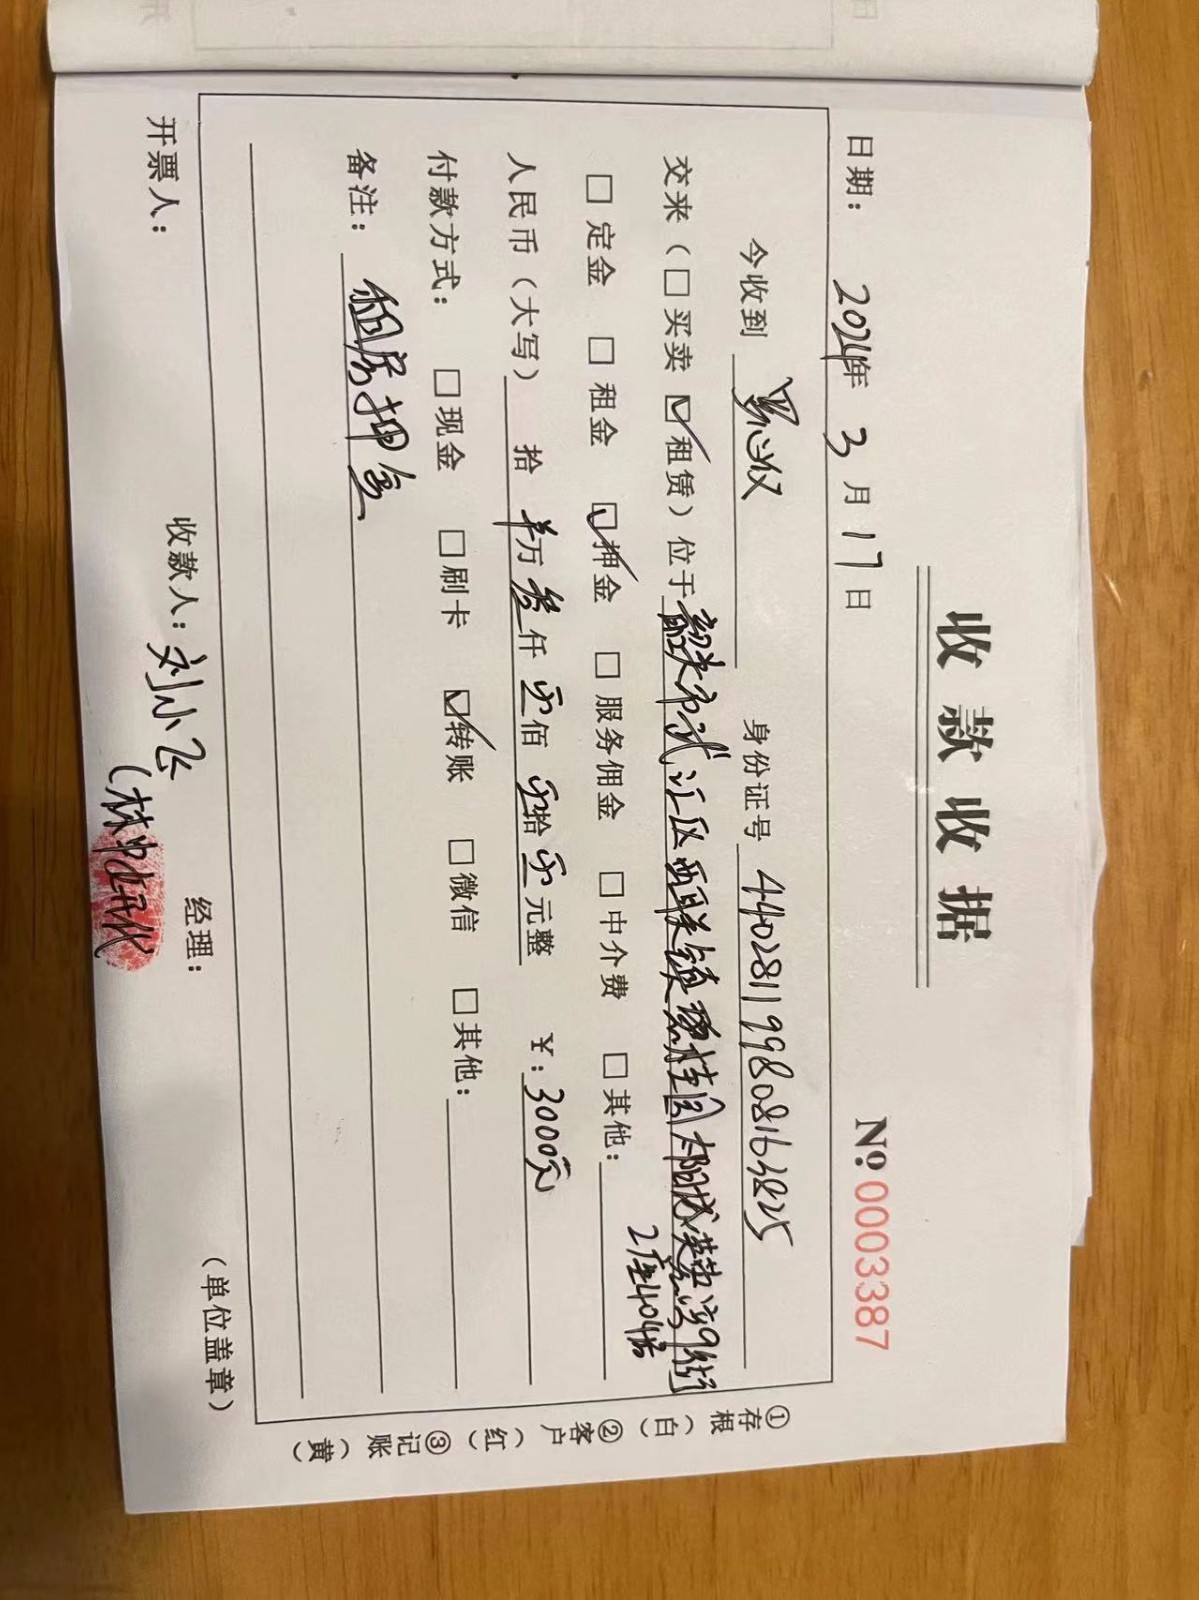 收款收据
No 0003387
日期：2024年 3 月 17 日
今收到 罗心仪 身份证号 440281199808163825
交来（□买卖 ☑租赁）位于韶关市武江区西联镇碧桂园太阳城芙蓉湾9街
2座404房
□定金 □租金 ☑押金 □服务佣金 □中介费 □其他：
人民币（大写） 拾 万叁仟零佰零拾零元整 ￥：3000元
付款方式： □现金 □刷卡 ☑转账 □微信 □其他：
备注：租房押金
开票人： 收款人：刘小飞 经理： （单位盖章）
（林 代
①存根（白）②客户（红）③记账（黄）